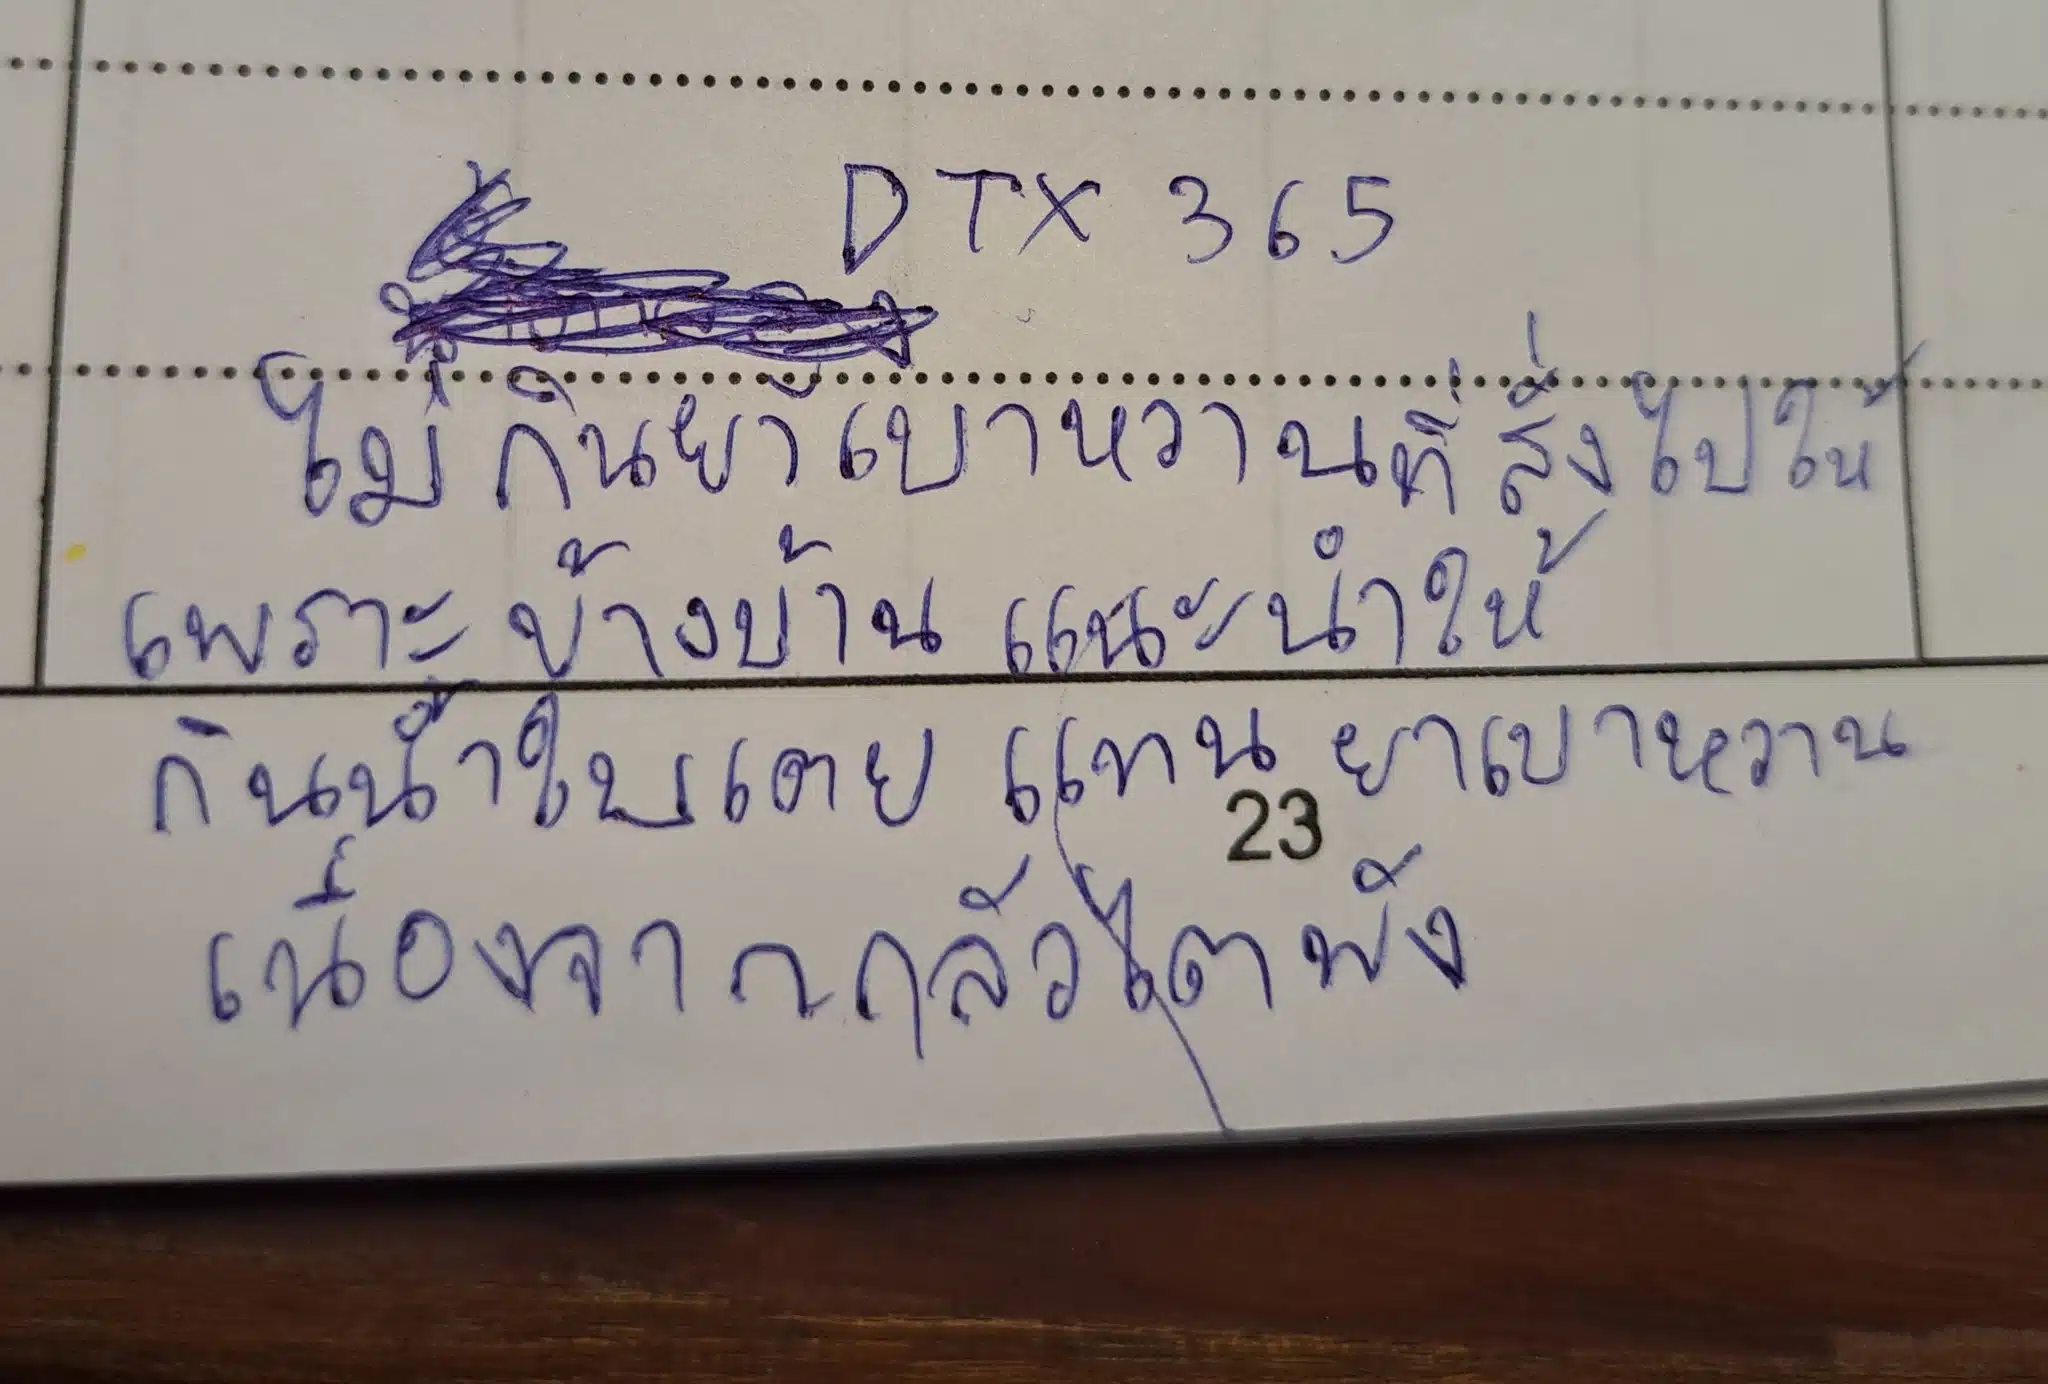 DTX 365
ไม่กินยาเบาหวานที่สั่งไปให้
เพราะ ข้างบ้าน แนะนำให้
กินน้ำใบเตย แทน ยาเบาหวาน
23
เนื่องจากกลัวไตพัง